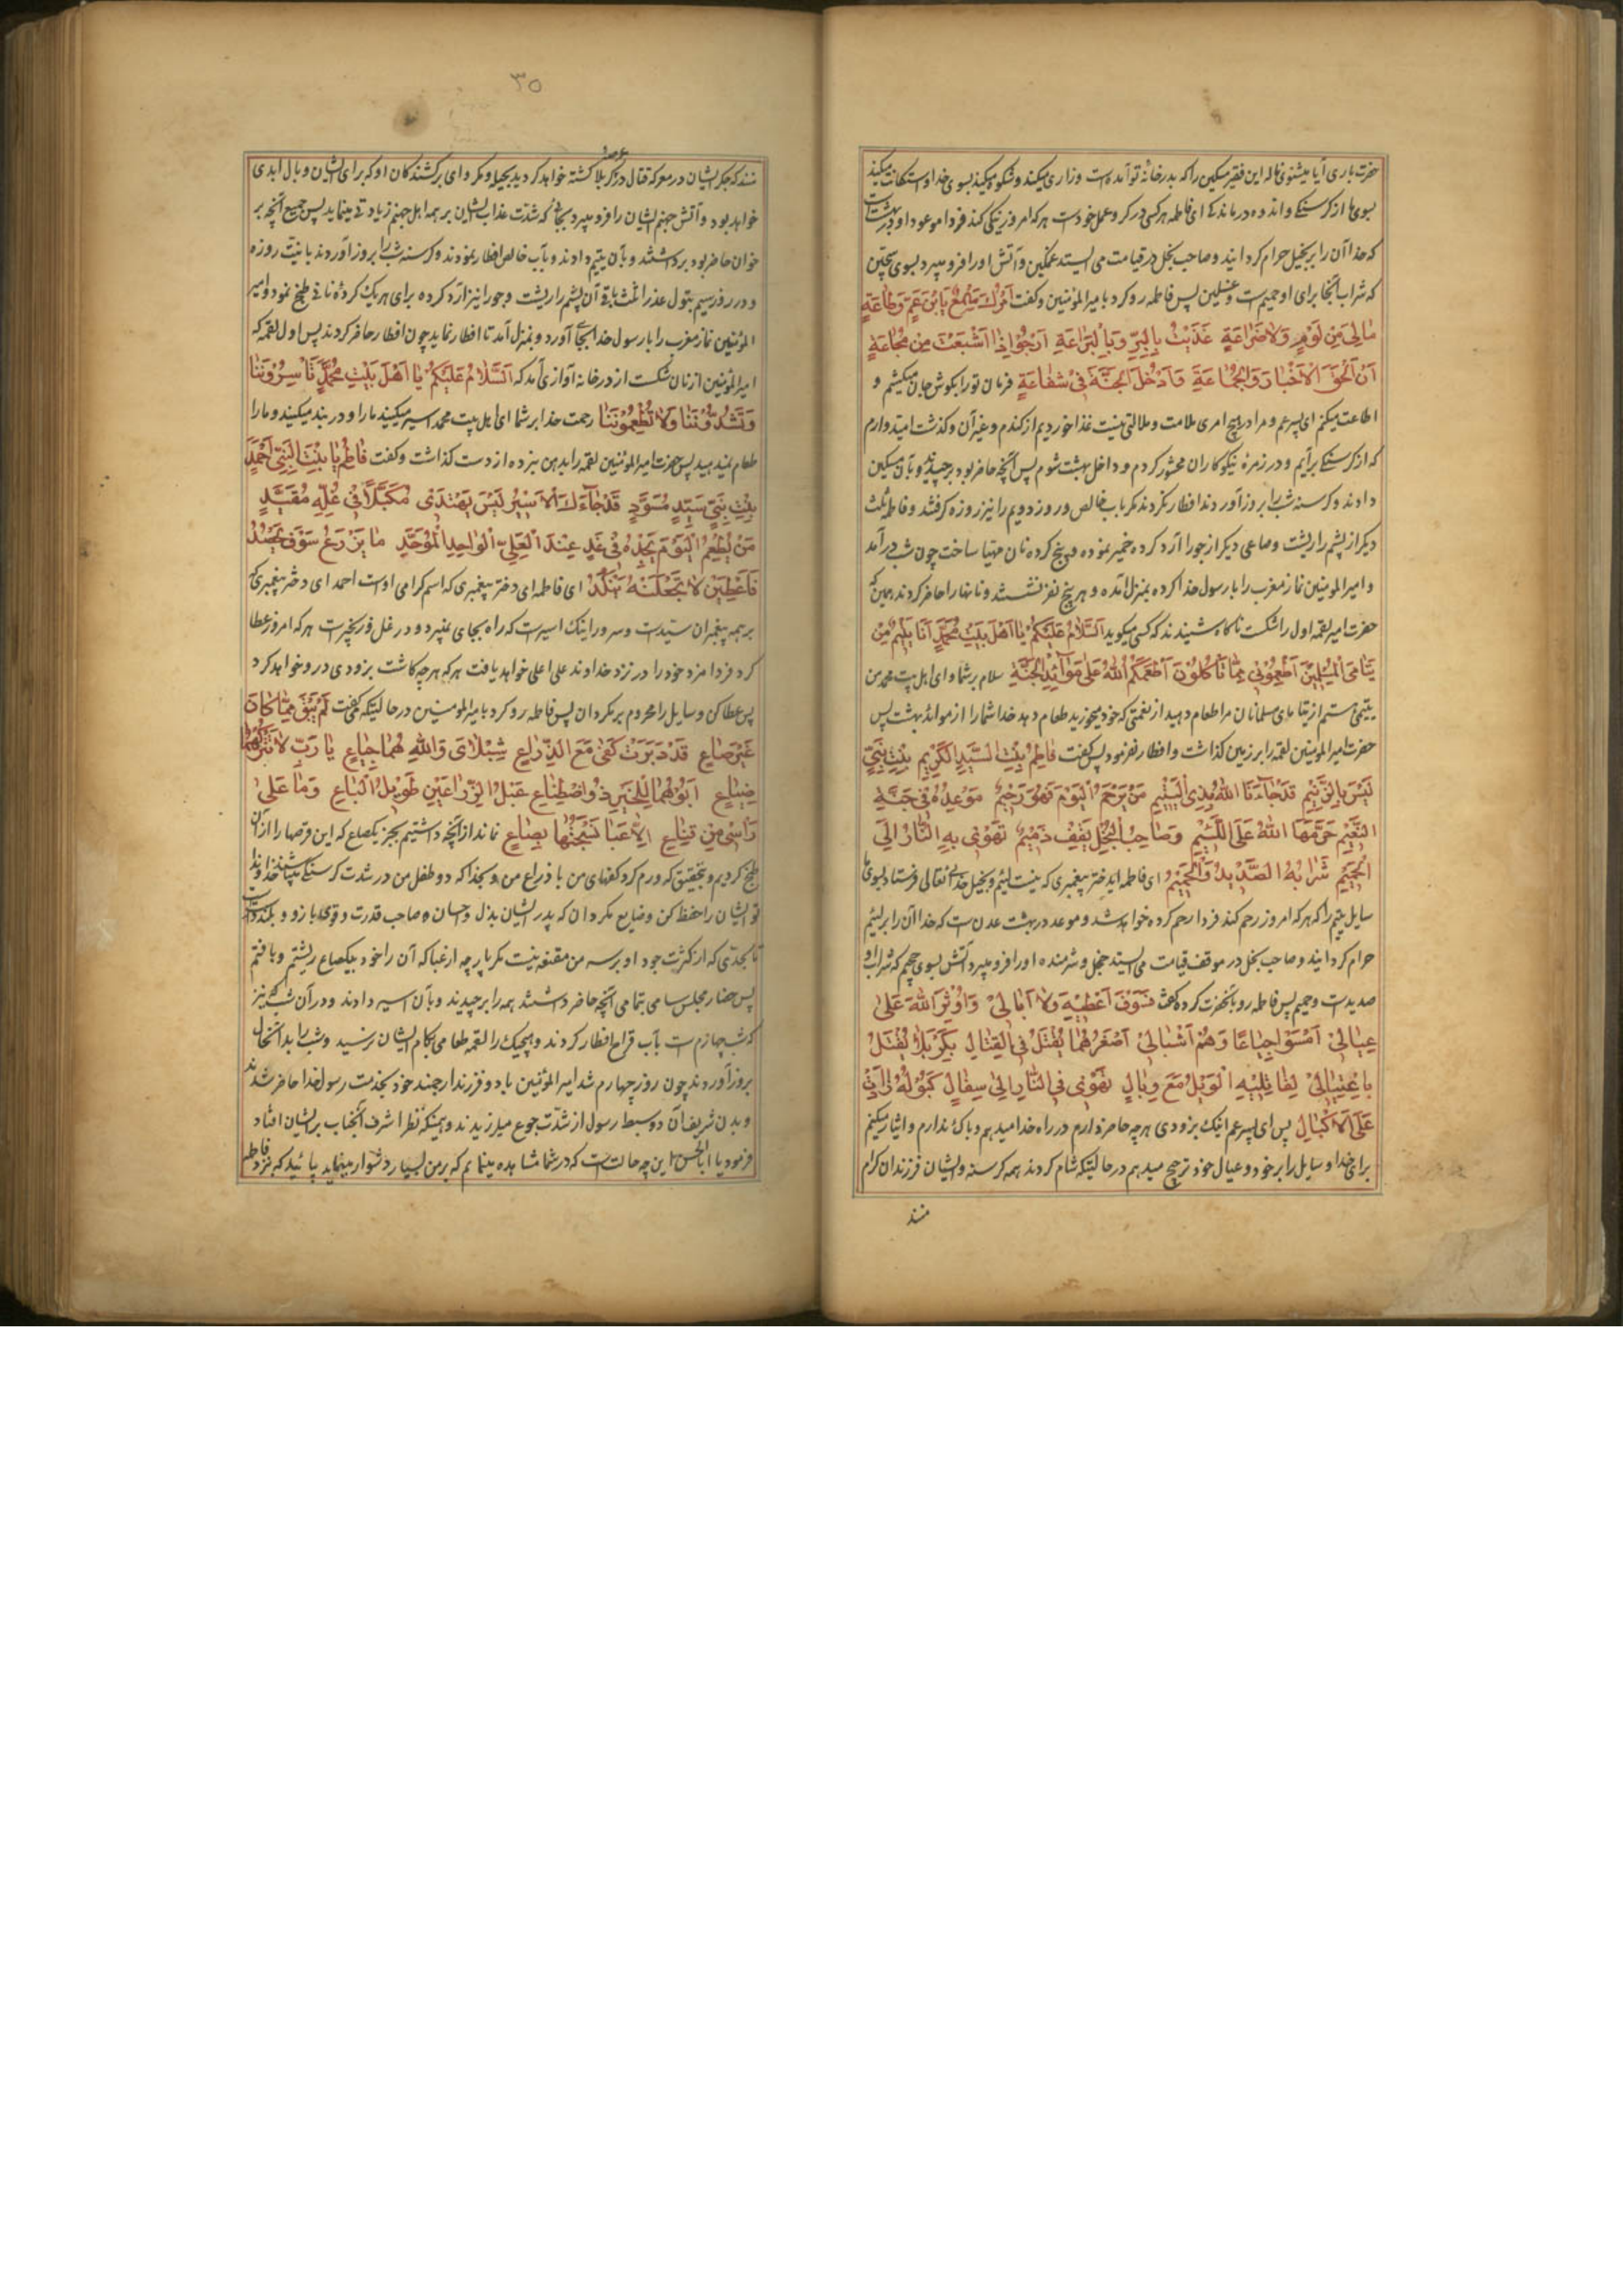 حضرت باری آیا میشنوی ناله این فقیر مسکین را که بدر خانهٔ تو آمده است و زاری میکند و شکوه میکند بسوی خدا و استکانت میکند
بسوی ما از گرسنگی و اندوه درمانده ای فاطمه هر کسی در گرو عمل خود است هر که امروز نیکی کند فردا موعود او در بهشت است
که خدا آن را بر بخیل حرام گردانیده و صاحب بخل در قیامت می ایستد غمگین و آتش او را فرو میبرد بسوی سجین
که شراب آنجا برای او حمیم است و غسلین پس فاطمه رو کرد بامیر المؤمنین و گفت اَمْرُكَ سَمْعٌ یَا بْنَ عَمِّ وَطَاعَةٍ
مٰا لِیَ مِنْ لَوْمٍ وَلٰا ضَرٰاعَةٍ غَذَیْتُ بِالْبِرِّ وَبِالْبَرٰاعَةِ اَرْجُوا اِذٰا اَشْبَعْتُ مِنْ مَجٰاعَةٍ
اَنْ اَلْحَقَ الْاَخْیٰارَ وَالْجَمٰاعَةِ وَاَدْخُلَ الْجَنَّةَ فِیْ شَفٰاعَةٍ فرمان تو را بگوش جان میکشم و
اطاعت میکنم ای پسر عم و مرا در هیچ امری ملامت و ملالتی نیست غذا خوردیم از گندم و غیر آن و گذشت امیدوارم
که از گرسنگی برآیم و در زمرهٔ نیکوکاران محشور گردم و داخل بهشت شوم پس آنچه حاضر بود برچیدند و بآن مسکین
دادند و گرسنه شب را بروز آوردند افطار نکردند مگر بآب خالص و روز دویم را نیز روزه گرفتند و فاطمه ثلث
دیگر از پشم را رشت و صاعی دیگر از جو را آرد کرده خمیر نموده و پنج گرده نان مهیا ساخت چون شب درآمد
و امیر المومنین نماز مغرب را با رسول خدا کرده بمنزل آمده و هر پنج نفر نشستند و نانها را حاضر کردند همین که
حضرت امیر لقمه اول را شکست ناگاه شنیدند که کسی میگوید اَلسَّلٰامُ عَلَیْكُمْ یٰا اَهْلَ بَیْتِ مُحَمَّدٍ اَنَا یَتِیْمٌ مِنْ
یَتٰامَی الْمُسْلِمِیْنَ اَطْعِمُوْنِیْ مِمّٰا تَاْكُلُوْنَ اَطْعَمَكُمُ اللهُ عَلٰی مَوٰآئِدِ الْجَنَّةِ سلام بر شما وای اهل بیت محمد من
یتیمی هستم از یتامای مسلمانان مرا طعام دهید از نعمتی که خود میخورید طعام دهد خدا شما را از مواید بهشت پس
حضرت امیر المومنین لقمه را بر زمین گذاشت و افطار نفرمود پس گفت فٰاطِمُ بِنْتَ السَّیِّدِ الْكَرِیْمِ بِنْتَ نَبِیٍّ
لَیْسَ بِالزَّنِیْمِ قَدْ جٰآءَنَا اللهُ بِذِی الْیَتِیْمِ مَنْ یَرْحَمِ الْیَوْمَ فَهُوَ رَحِیْمٌ مَوْعِدُهُ فِیْ جَنَّةِ
النَّعِیْمِ حَرَّمَهَا اللهُ عَلَی اللَّئِیْمِ وَصٰاحِبُ الْبُخْلِ یَقِفُ ذَمِیْمٌ تَهْوٖی بِهِ النّٰارُ اِلَی
الْجَحِیْمِ شَرٰابُهُ الصَّدِیْدُ وَالْحَمِیْمُ ای فاطمه ای دختر پیغمبری که نیست لئیم و بخیل خدای تعالی فرستاد بسوی ما
سایل یتیم را که هر که امروز رحم کند فردا رحم کرده خواهد شد و موعد در بهشت عدن است که خدا آن را بر لئیم
حرام گردانید و صاحب بخل در موقف قیامت می ایستد خجل و شرمنده او را فرو میبرد آتش بسوی جحیم که شراب او
صدید است و حمیم پس فاطمه رو بآنحضرت کرده گفت فَسَوْفَ اُعْطِیْهِ وَلٰا اُبٰالِیْ وَاُوْثِرُ اللهَ عَلٰی
عِیٰالِیْ اَمْسَوْا جِیٰاعًا وَهُمْ اَشْبٰالِیْ اَصْغَرُهُمٰا یُقْتَلُ فِی الْقِتٰالِ بِكَرْبَلٰا یُقْتَلُ
بِاغْتِیٰالِیْ لِقٰاتِلِیْهِ الْوَیْلُ مَعَ وَبٰالٍ تَهْوٖی فِی النّٰارِ اِلٰی سِفٰالٍ كُبُوْلُهُ زٰادَتْ
عَلَی الْاَكْبٰالِ پس ای پسر عم اینک بزودی هر چه حاضر دارم در راه خدا میدهم و باک ندارم و ایثار میکنم
برای خدا و سایل را بر خود و عیال خود ترجیح میدهم در حالتیکه شام کردند همه گرسنه و ایشان فرزندان کرام
منند
۳۵
منند که جگر ایشان در معرکه قتال در کربلا کشته خواهد گردید بحیله و مکر وای بر کشندگان او که برای ایشان وبال ابدی
خواهد بود و آتش جهنم ایشان را فرو میبرد بنحوی که شدت عذاب ایشان بر همه اهل جهنم زیادتی مینماید پس جمیع آنچه بر
خوان حاضر بود برداشتند و بآن یتیم دادند و بآب خالص افطار نمودند و گرسنه شب را بروز آوردند با نیت روزه
و در روز سیم بتول عذرا ثلث باقی آن پشم را رشت و جو را نیز آرد کرده برای هر یک گرده نانی طبخ نمود و امیر
المؤمنین نماز مغرب را با رسول خدا بجای آورد و بمنزل آمد تا افطار نماید چون افطار حاضر کردند پس اول لقمه که
امیر المؤمنین از نان شکست از در خانه آوازی آمد که اَلسَّلٰامُ عَلَیْكُمْ یٰا اَهْلَ بَیْتِ مُحَمَّدٍ تَاْسِرُوْنَنٰا
وَتَشُدُّوْنَنٰا وَلٰا تُطْعِمُوْنَنٰا رحمت خدا بر شما ای اهل بیت محمد اسیر میکنید ما را و در بند میکنید و ما را
طعام نمیدهید پس حضرت امیر المؤمنین لقمه را بدهن نبرده از دست گذاشت و گفت فٰاطِمُ یٰا بِنْتَ النَّبِیِّ اَحْمَدٍ
بِنْتَ نَبِیٍّ سَیِّدٍ مُسَوَّدٍ قَدْ جٰآءَكِ الْاَسِیْرُ لَیْسَ یَهْتَدٖی مُكَبَّلًا فِیْ غُلِّهِ مُقَیَّدٍ
مَنْ یُطْعِمِ الْیَوْمَ یَجِدْهُ فِیْ غَدٍ عِنْدَ الْعَلِیِّ الْوٰاحِدِ الْمُوَحَّدِ مٰا یَزْرَعُ سَوْفَ یَحْصُدُ
فَاَعْطِیْنَ لٰا تَجْعَلَنَّهُ بَنَكَدْ ای فاطمه ای دختر پیغمبری که اسم گرامی اوست احمد ای دختر پیغمبری که
بر همه پیغمبران سید است و سرور اینک اسیر است که راه بجای نمیبرد و در غل و زنجیر است هر که امروز عطا
کرد فردا مزد خود را در نزد خداوند علی اعلی خواهد یافت هر که هر چه کاشت بزودی درو خواهد کرد
پس عطا کن و سایل را محروم برمگردان پس فاطمه رو کرد بامیر المومنین در حالتیکه میگفت لَمْ یَبْقَ مِمّٰا كٰانَ
غَیْرُ صٰاعٍ قَدْ دَبَرَتْ كَفّٖی مَعَ الذِّرٰاعِ شِبْلٰایَ وَاللهِ هُمٰا جِیٰاعٍ یٰا رَبِّ لٰا تَتْرُكْهُمٰا
ضِیٰاعٍ اَبُوْهُمٰا لِلْخَیْرِ ذُو اصْطِنٰاعٍ عَبْلُ الذِّرٰاعَیْنِ طَوِیْلُ الْبٰاعِ وَمٰا عَلٰی
رَاْسِیْ مِنْ قِنٰاعٍ اِلّٰا عَبٰا نَسَجْتُهٰا بِصٰاعٍ نماند از آنچه داشتیم بجز یکصاع که این قرصها را از آن
طبخ کردیم و بتحقیق که ورم کرد کفهای من با ذراع من و بخدا که دو طفل من در شدت گرسنگی هستند خداوندا
تو ایشان را حفظ کن و ضایع مگردان که پدر ایشان بذل و احسان و صاحب قدرت و قوت بازو و بلند دست است
تا بحدی که از کثرت جود او بر سر من مقنعه نیست مگر پارچه از عبا که آن را خود بیکصاع ریشتم و بافتم
پس حضار مجلس سامی بتمامی آنچه حاضر داشتند همه را برچیدند و بآن اسیر دادند و در آن شب نیز
که شب چهارم است بآب قراح افطار کردند و هیچیک را لقمه طعامی بکام ایشان نرسید و شب را بدانحال
بروز آوردند چون روز چهارم شد امیر المؤمنین با دو فرزند ارجمند خود بخدمت رسول خدا حاضر شدند
و بدن شریف آن دو سبط رسول از شدت جوع میلرزیدند و همینکه نظر اشرف آنجناب بر ایشان افتاد
فرمود یا ابا الحسن این چه حالت است که در شما مشاهده مینمایم که بر من بسیار دشوار مینماید بیائید که نزد فاطمه